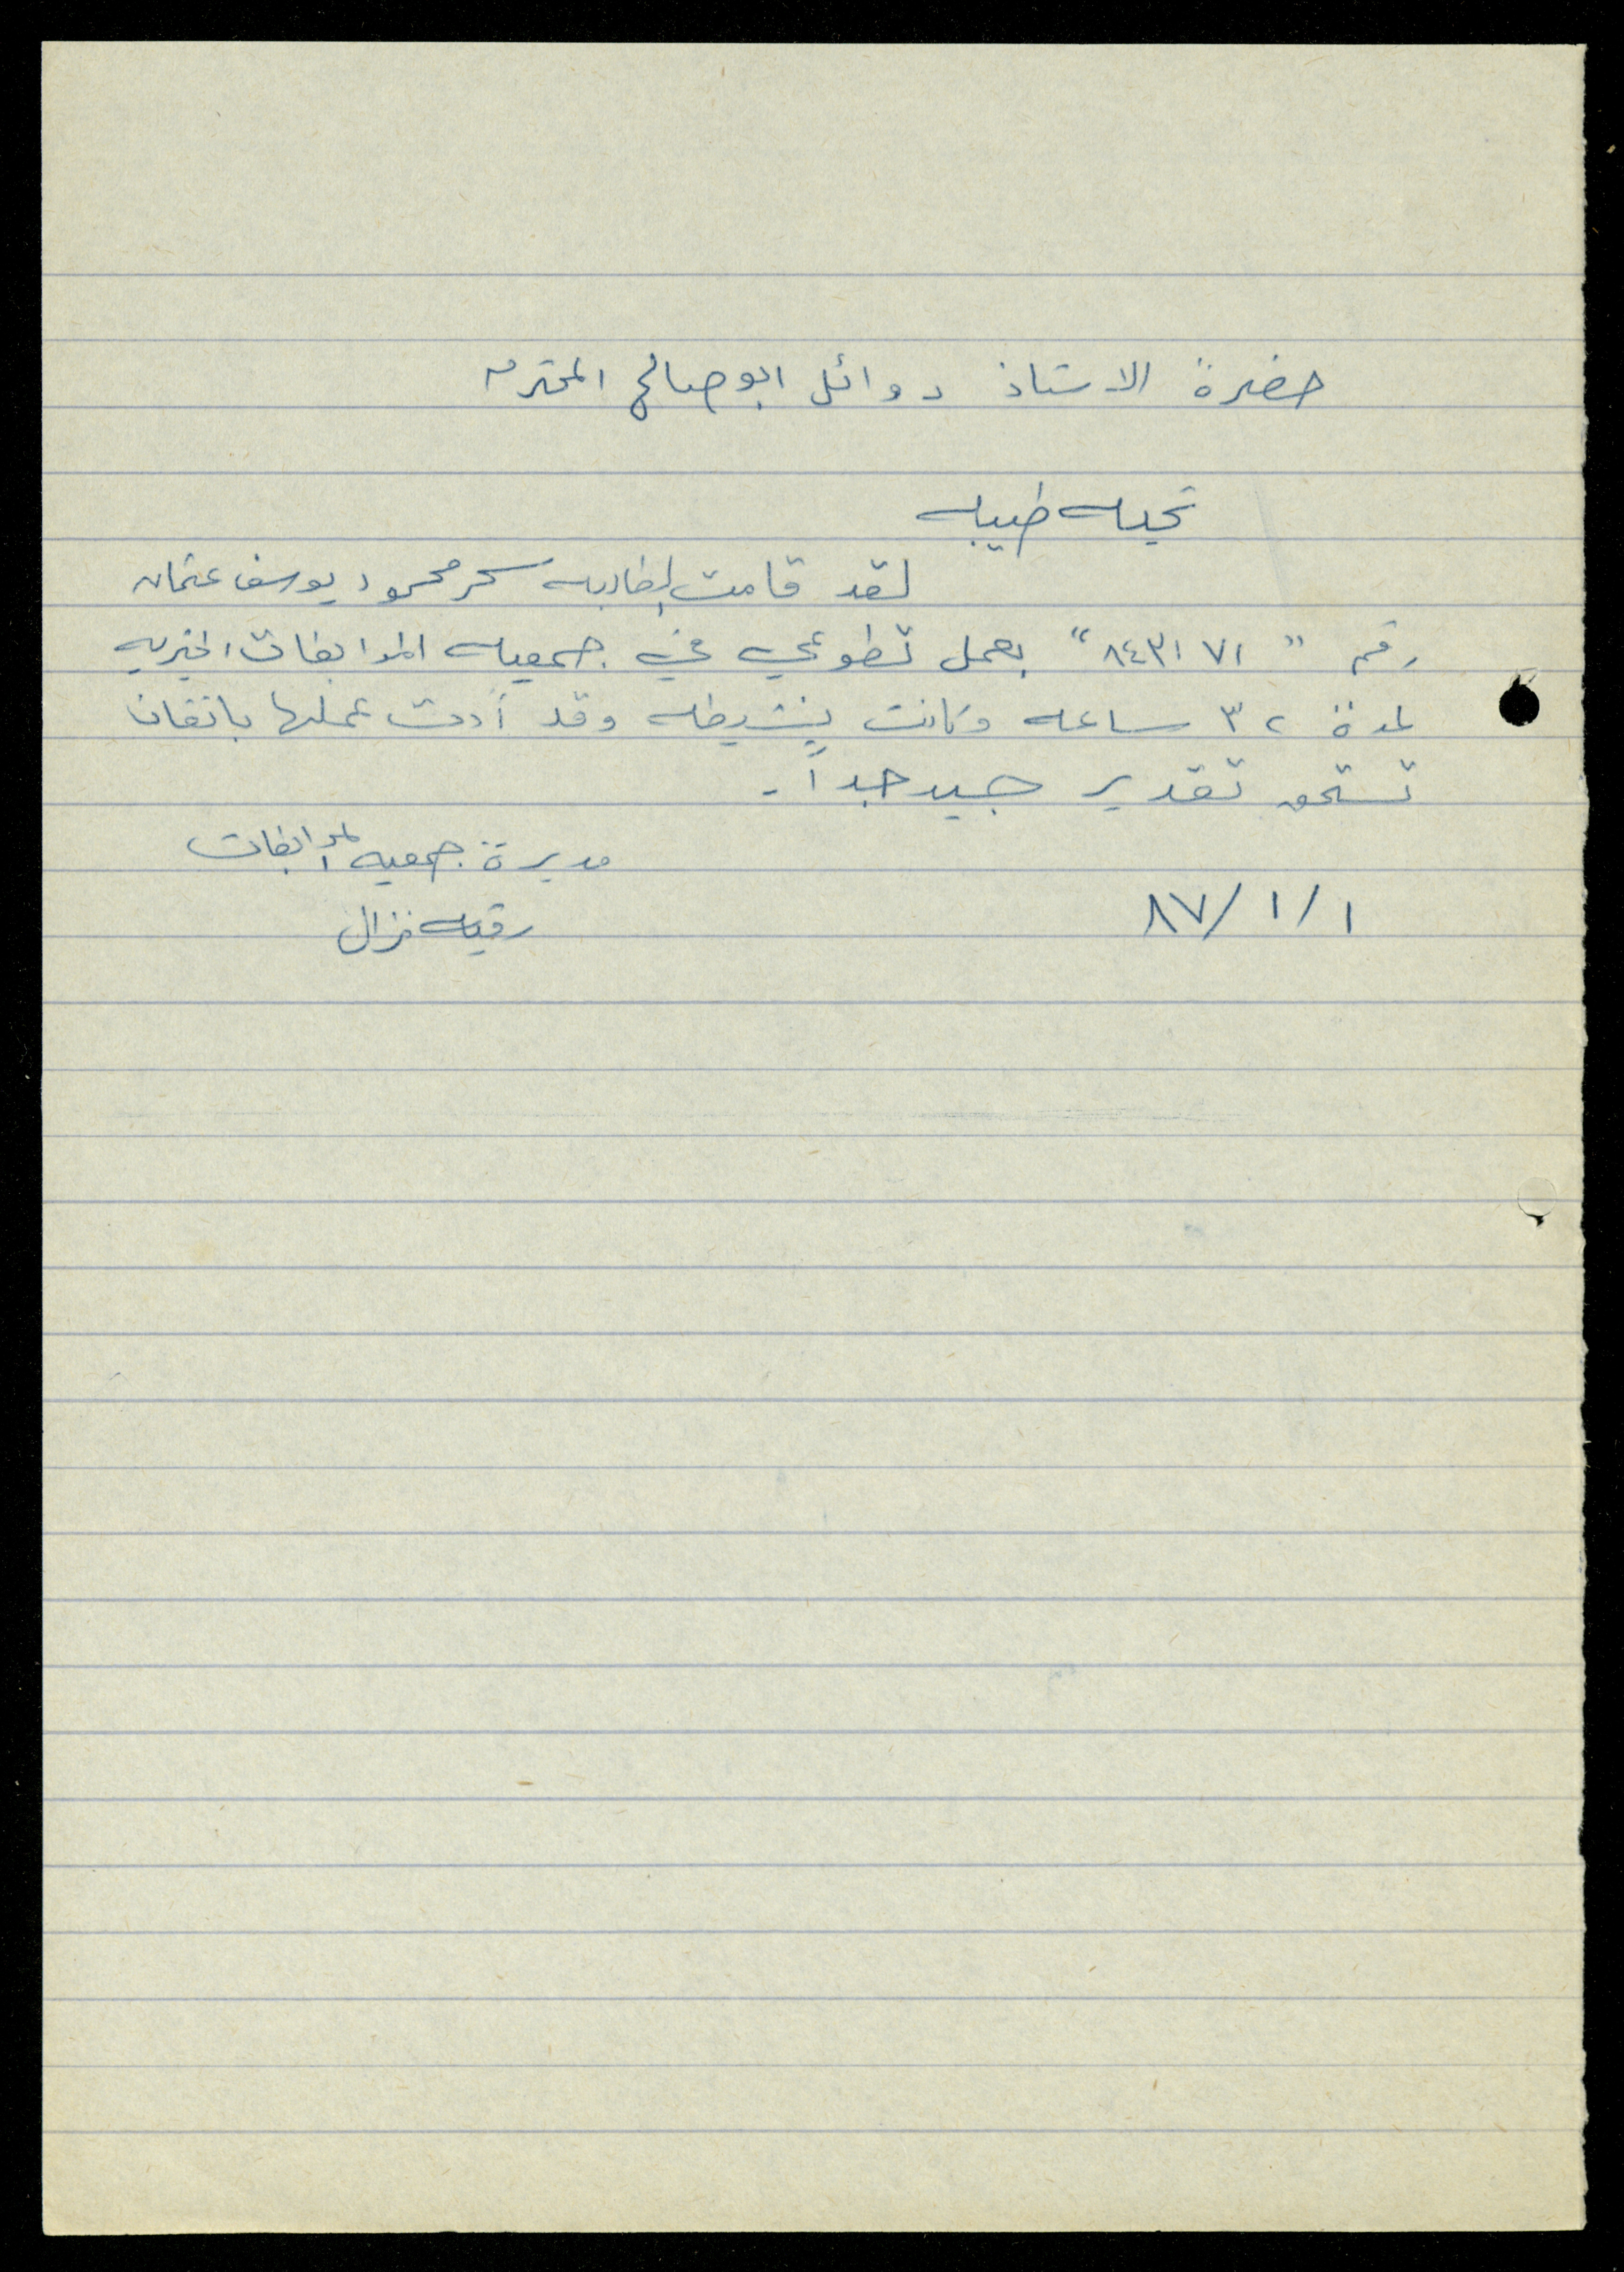 حضرة الاستاذ د وائل ابو صالح المحترم
تحيه طيبه
لقد قامت الطالبه سحر محمود يوسف عثمان
رقم "٨٤٣١٧١" بعمل تطوعي في جمعيه المرابطات الخيريه
لمدة ٣٢ ساعه وكانت نشيطه وقد أدت عملها باتقان
تستحق تقدير جيد جداً.
مديرة جمعيه المرابطات
رقيه نزال
٨٧/١/١